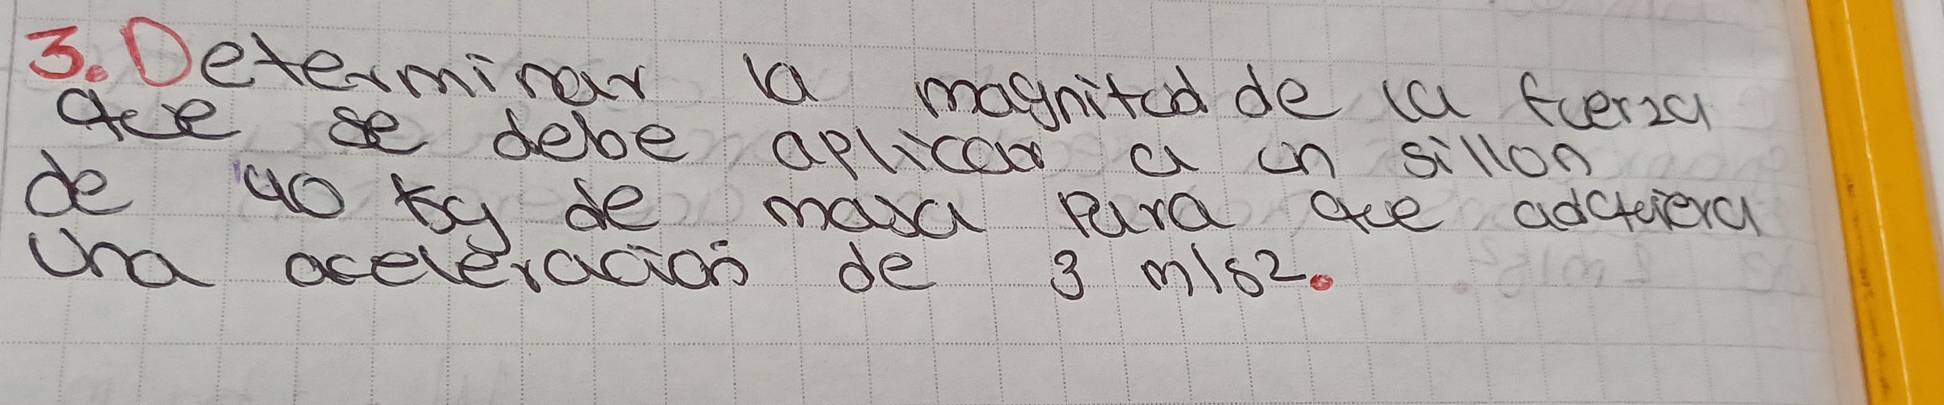 3. Determinar la magnitud de la fuerza
que se debe aplicar a un sillon
de 40 kg de masa para que adquiera
una aceleración de 3 m/s2.